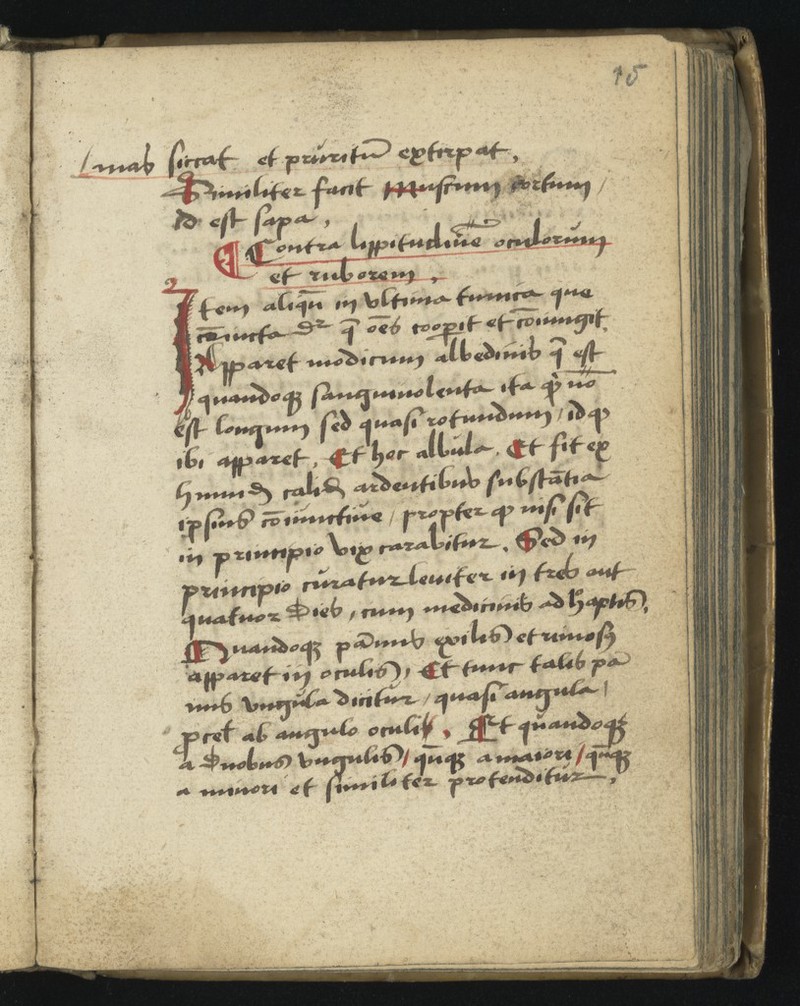 15
linas siccat et pruritū extirpat,
Similiter facit Muscum tortum /
id est sapa,
Contra lippitudinē oculorum
et ruborem,
Item aliqñ in vltima tunica que
cōiuncta dr̄ q̄ oēs cooperit et cōiungit
Apparet modicum albedinis q̄ est
quandoqꝫ sanguinolenta ita qꝫ nō
est longum sed quasi rotundum / idqꝫ
ibi apparet. Et hoc albula. Et fit ex
humid calid ardentibus substātia
ipsius cōiunctiue / propter qꝫ nisi sit
in principio vix carabitur. Sed in
principio curatur leuiter in tres aut
quatuor dies, cum medicinis ad
Quandoqꝫ pānus exilis et rimosꝫ
apparet in oculis, Et tunc talis pā
nus vngula dicitur, quasi angula /
ab angulo oculi, Et quandoqꝫ
a duobus vngulis / qñqꝫ a maiori / qñqꝫ
a minori et similiter protenditur,